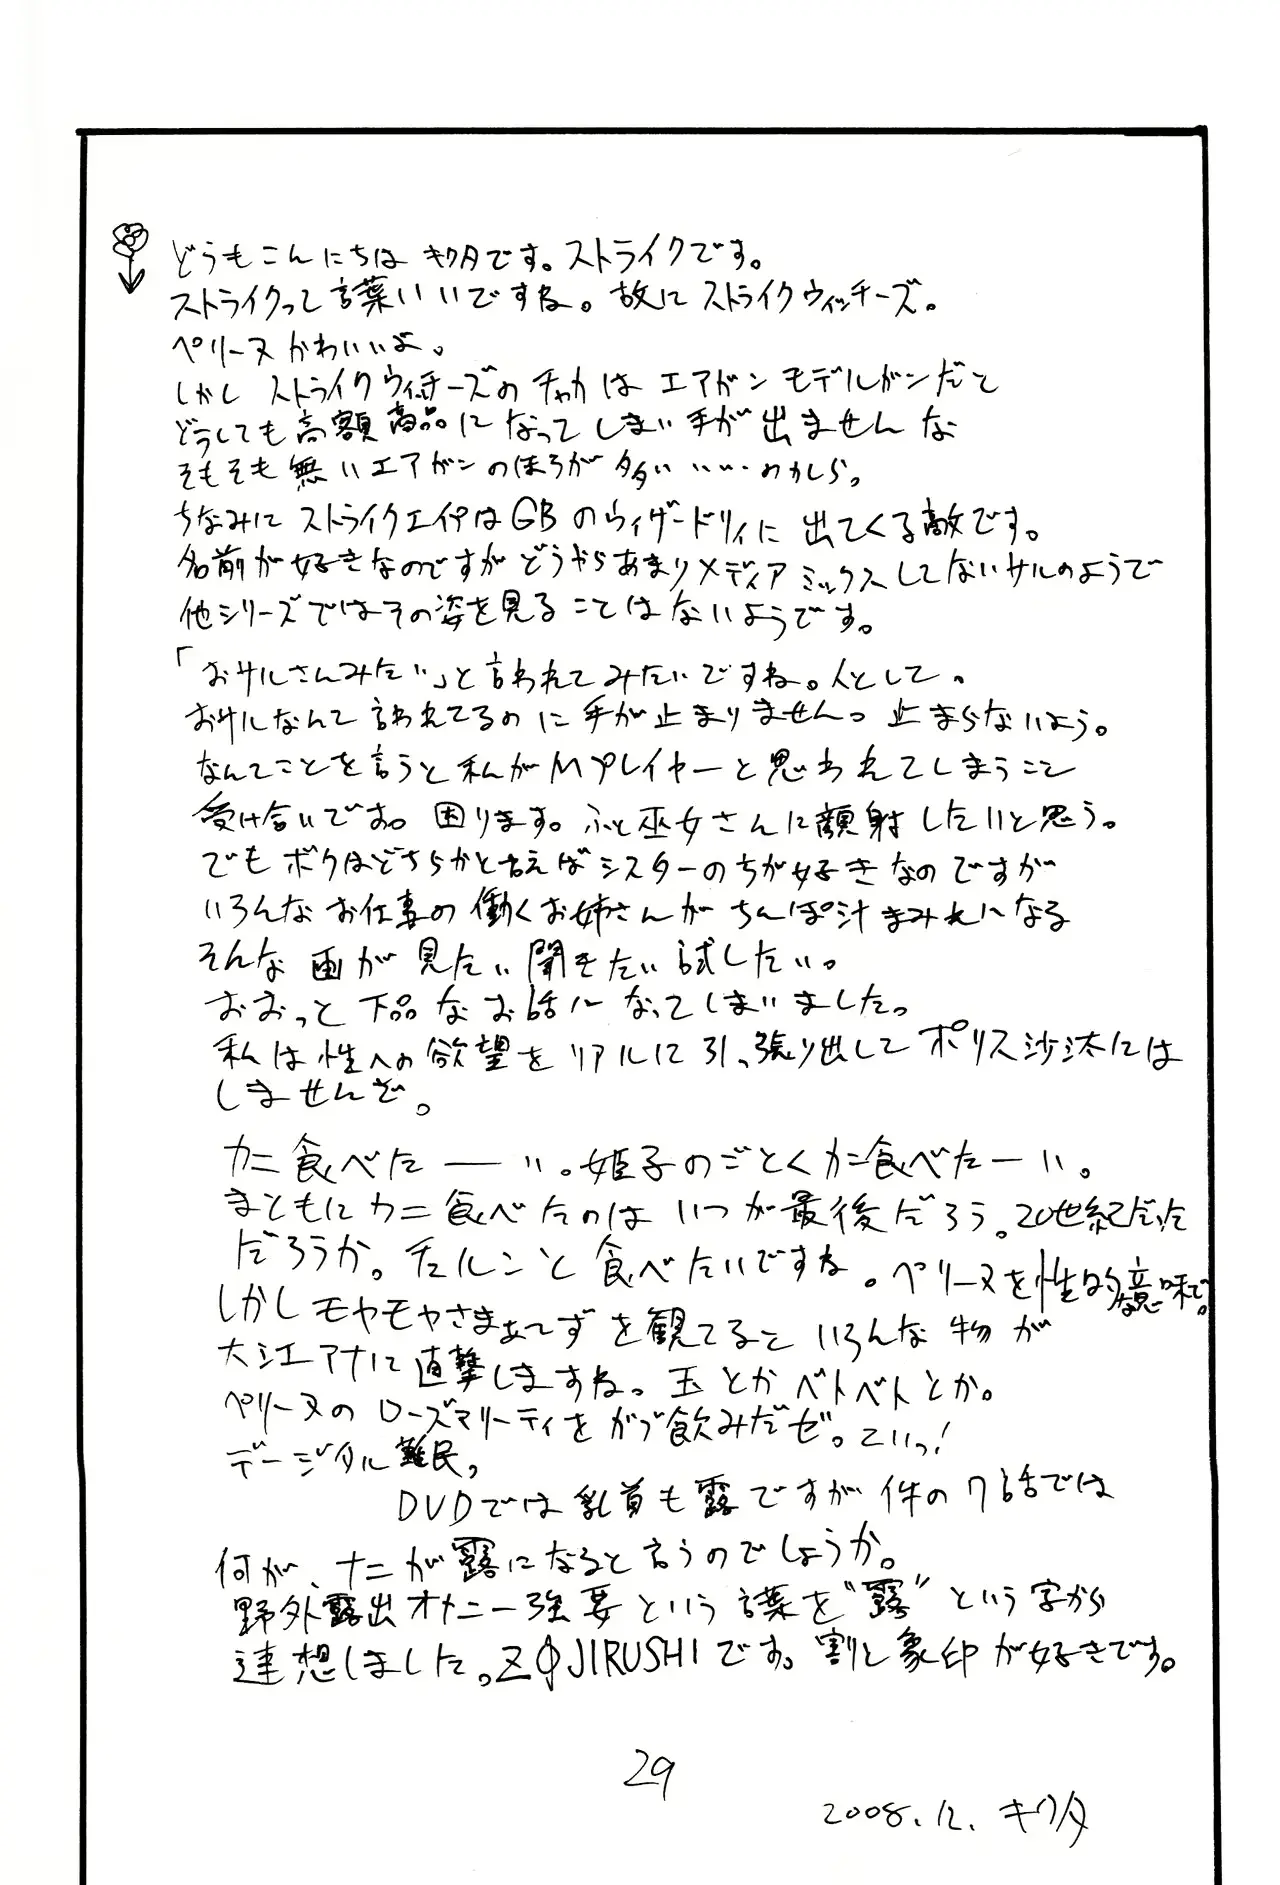 どうもこんにちは キクタです。ストライクです。
ストライクって言葉いいですね。故にストライクウィッチーズ。
ペリーヌかわいいよ。
しかしストライクウィッチーズのチャカは エアガン モデルガンだと
どうしても高額商品になってしまい手が出ませんな
そもそも無いエアガンのほうが多い
ちなみにストライクエイプはGBのウィザードリィに出てくる敵です。
名前が好きなのですがどうやらあまりメディアミックスしてないサルのようで
他シリーズではその姿を見ることはないようです。
「おサルさんみたい」と言われてみたいですね。人として。
おサルなんて言われてるのに手が止まりません。止まらないよう。
なんてことを言うと私がMプレイヤーと思われてしまうこと
受け合いです。困ります。ふと巫女さんに顔射したいと思う。
でもボクはどちらかと言えばシスターのちが好きなのですが
いろんなお仕事の働くお姉さんがちんぽ汁まみれになる
そんな画が見たい聞きたい試したい。
おおっと下品なお話になってしまいました。
私は性への欲望をリアルに引っ張り出してポリス沙汰には
しませんぞ。
カニ食べたーい。姫子のごとくカニ食べたーい。
まともにカニ食べたのはいつが最後だろう。20世紀だった
だろうか。チェルンと食べたいですね。ペリーヌを性的な意味で。
しかしモヤモヤさまぁ~ずを観てるといろんな物が
大江アナに直撃しますね。玉とかベトベトとか。
ペリーヌのローズマリーティをがぶ飲みだぜ。こいっ!
デージタル難民。
DVDでは乳首も露ですが件の7話では
何が、ナニが露になると言うのでしょうか。
野外露出オナニー強要という言葉を“露”という字から
連想しました。ZOJIRUSHIです。割と象印が好きです。
29
2008.12. キクタ